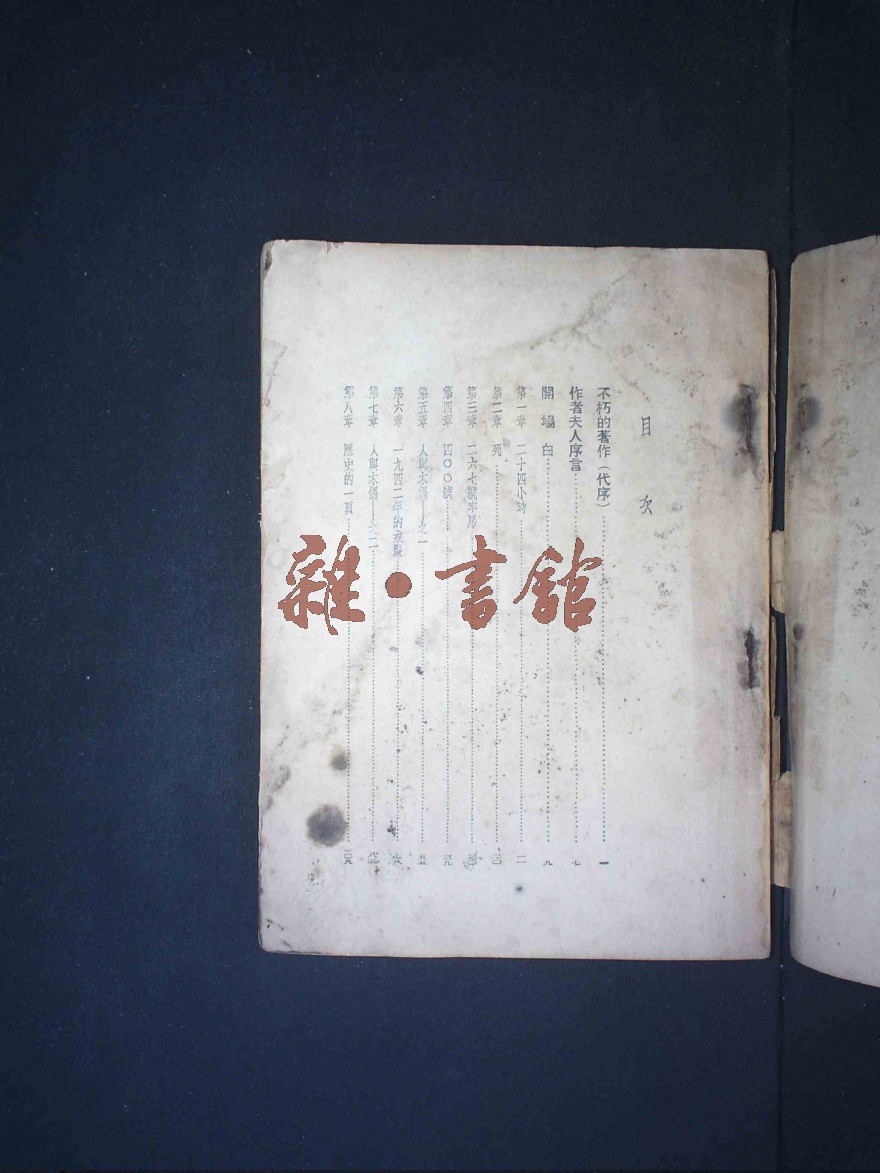 目次
不朽的著作（代序）……一
作者夫人序言……七
開場白……九
第一章 二十四小時……一一
第二章 死……
第三章 二六七號牢房……
第四章 四〇〇號……
第五章 人與木偶——之一……
第六章 一九四二年的戒嚴……
第七章 人與木偶——之二……
第八章 歷史的一頁……
雜·書館